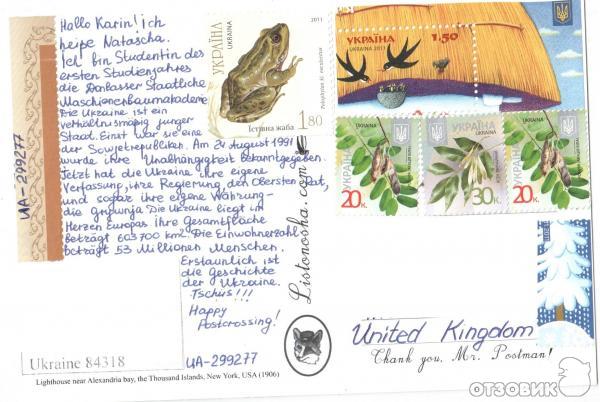 Hallo Karin! ich
heiße Natascha.
Ich bin Studentin des
ersten Studienjahres
die Donbasser Staatliche
Maschienenbaumakademie
Die Ukraine ist ein
verhältnismäßig junger
Staat. Einst war sie eine
der Sowjetrepubliken. Am 24 August 1991
wurde ihre Unabhängigkeit bekanntgegeben.
Jetzt hat die Ukraine ihre eigene
Verfassung, ihre Regierung, den Obersten Rat,
und sogar ihre eigene Währung-
die Griwnja. Die Ukraine liegt im
Herzen Europas. Ihre Gesamtfläche
beträgt 603 700 km. Die Einwohnerzahl
beträgt 53 Millionen Menschen.
Erstaunlich ist
die Geschichte
der Ukraine.
Tschüs!!!
Happy
Postcrossing!
UA-299277
UA-299277
Ukraine 84318
Lighthouse near Alexandria bay, the Thousand Islands, New York, USA (1906)
Listonosha.com
УКРАЇНА
UKRAINE
2011
Їстівна жаба
1.80
УКРАЇНА
UKRAINE 2011
1.50
УКРАЇНА
UKRAINE
20к.
УКРАЇНА
30к.
УКРАЇНА
UKRAINE
20к.
United Kingdom
Thank you, Mr. Postman!
ОТЗОВИК